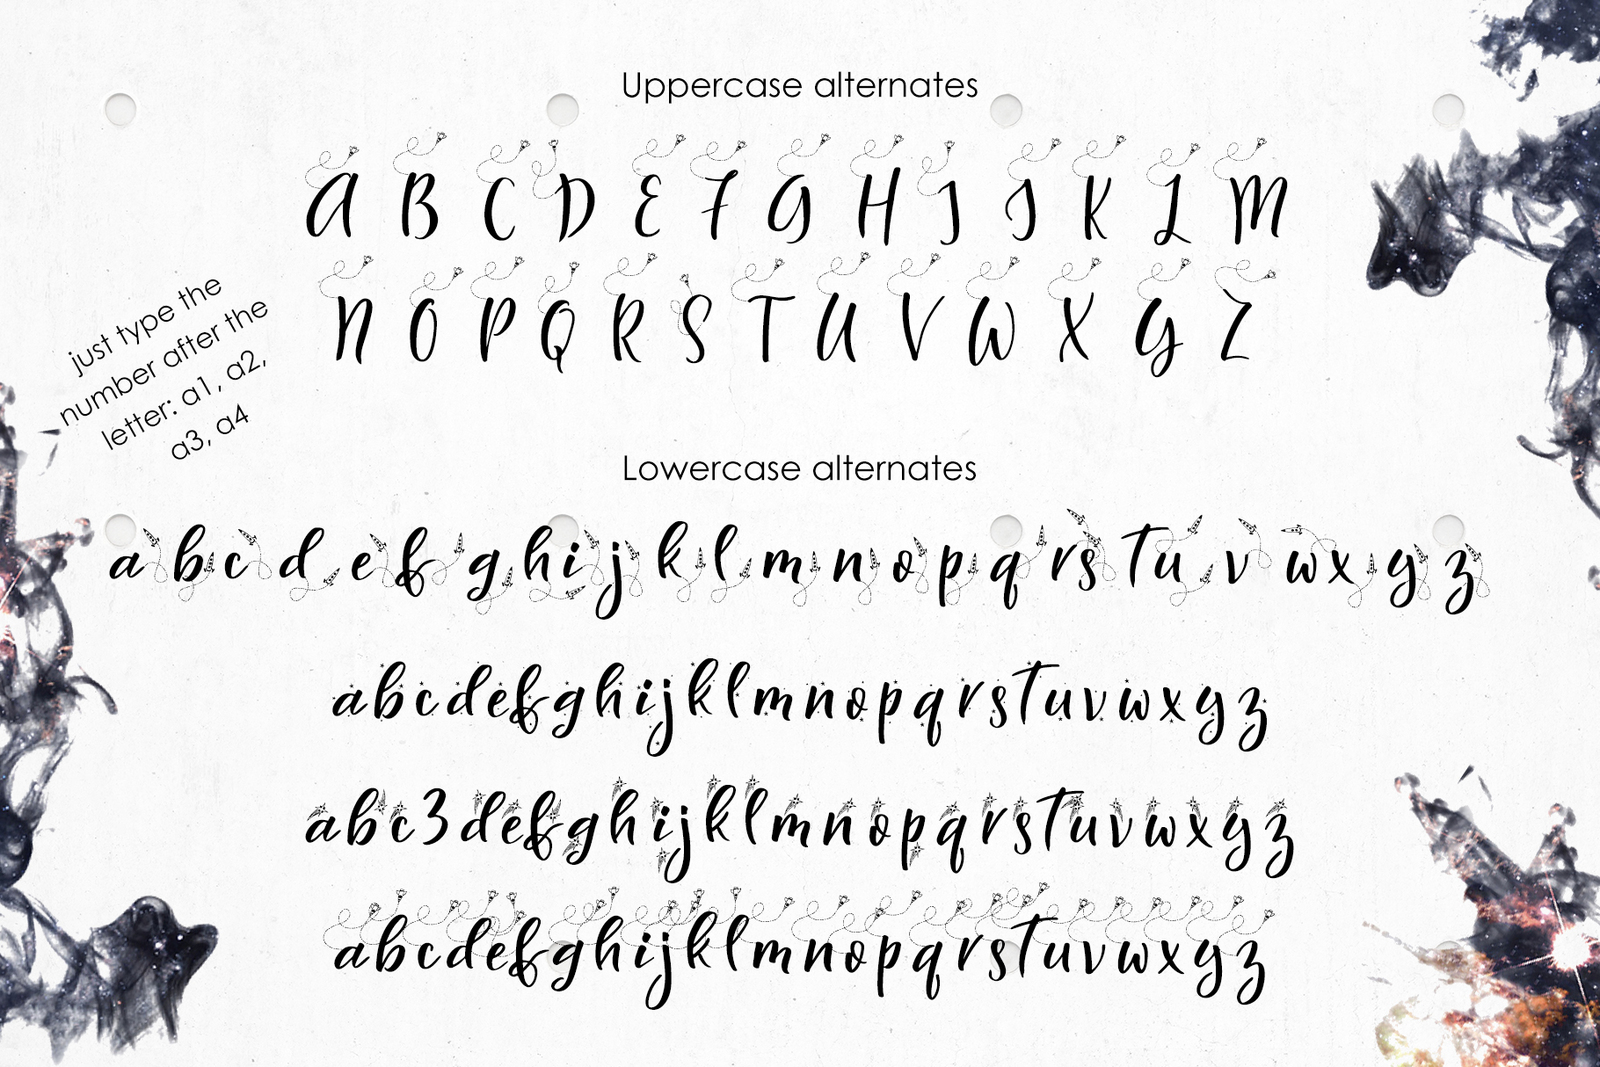 Uppercase alternates
A B C D E F G H I J K L M
N O P Q R S T U V W X Y Z
just type the
number after the
letter: a1, a2,
a3, a4
Lowercase alternates
a b c d e f g h i j k l m n o p q r s t u v w x y z
a b c d e f g h i j k l m n o p q r s t u v w x y z
a b c 3 d e f g h i j k l m n o p q r s t u v w x y z
a b c d e f g h i j k l m n o p q r s t u v w x y z